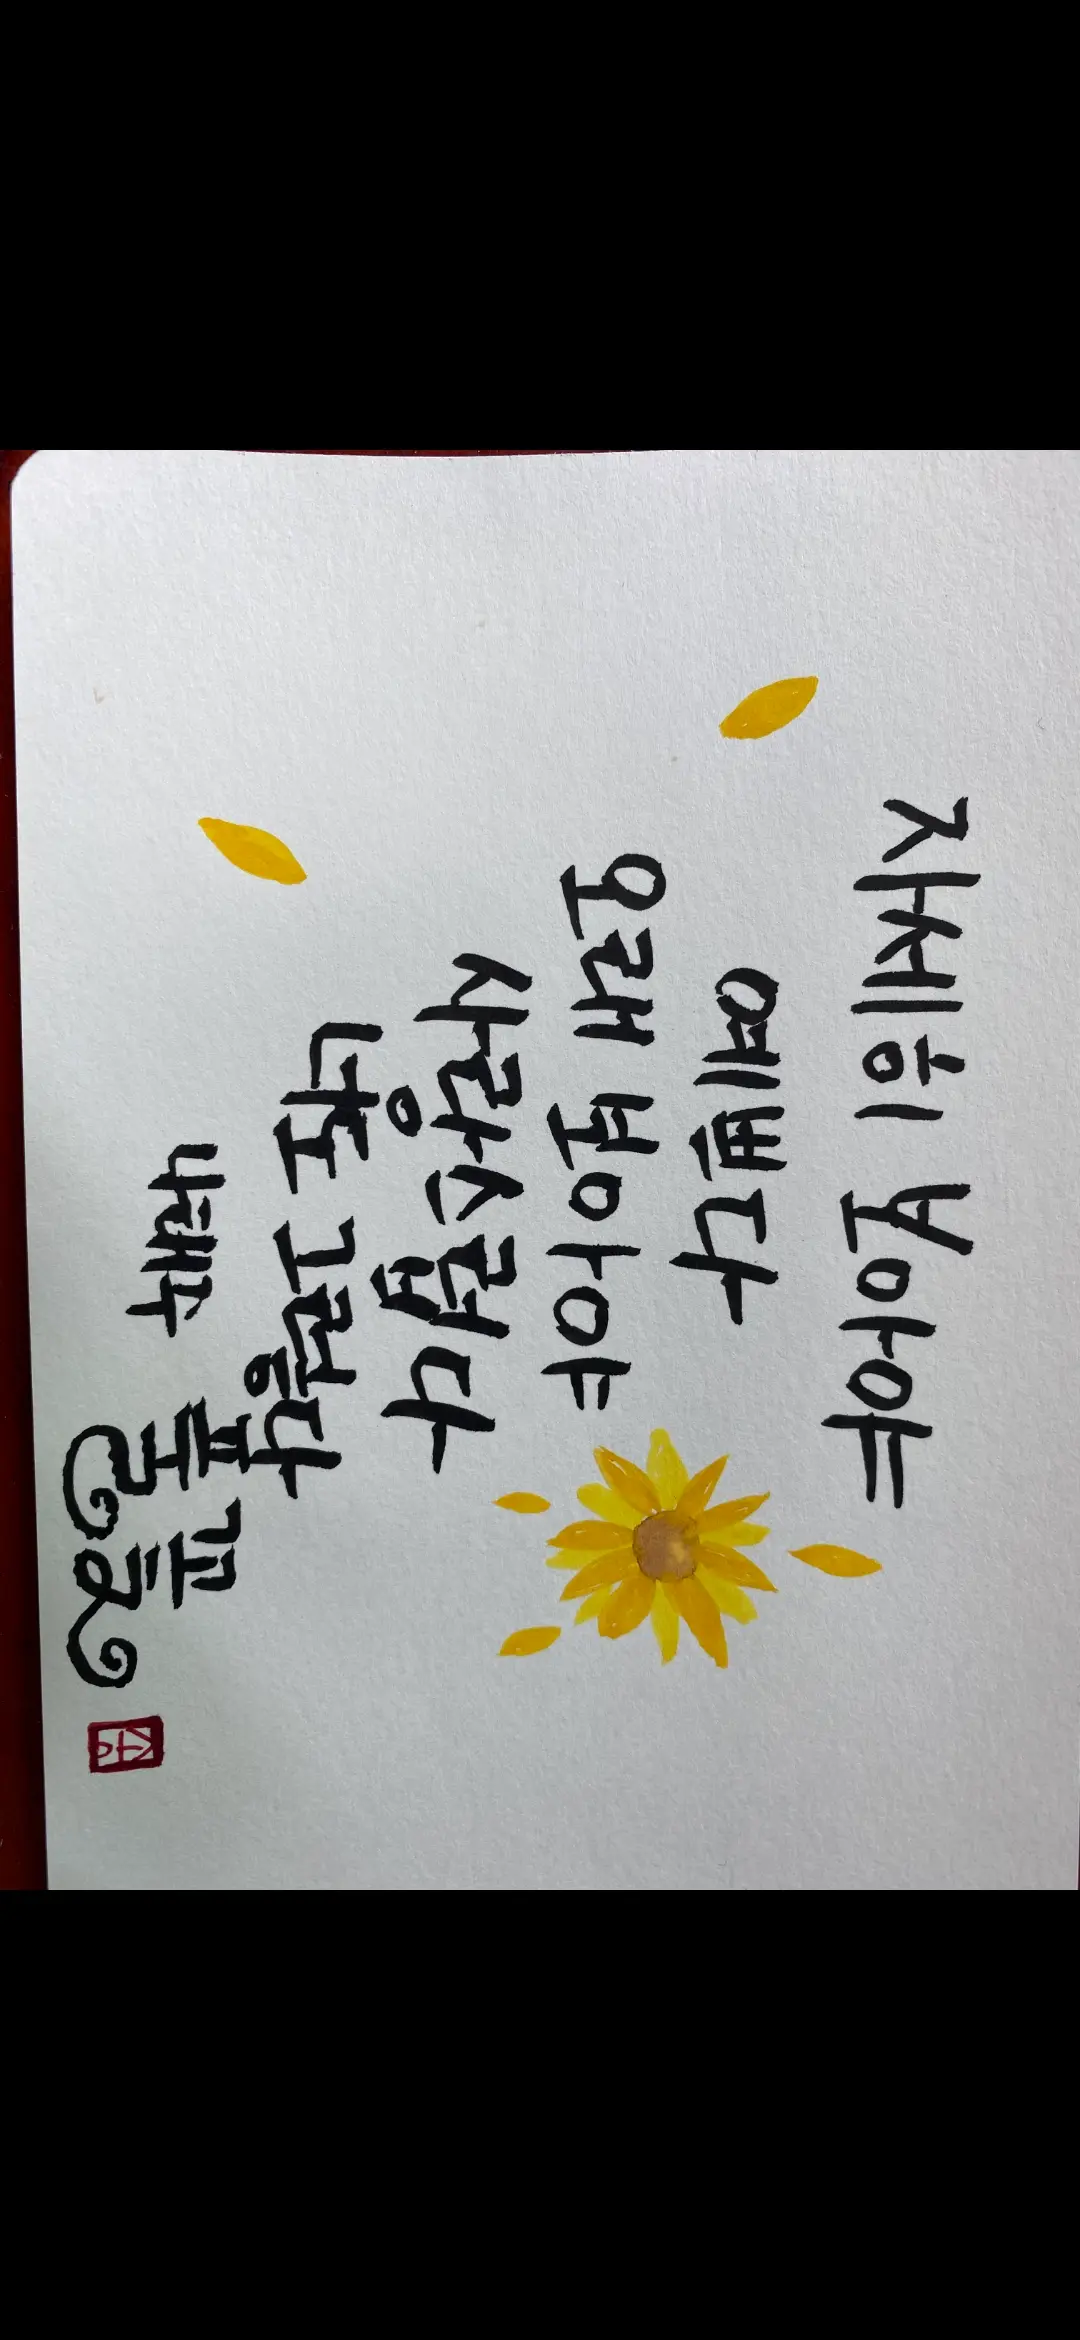 자세히 보아야
예쁘다
오래 보아야
사랑스럽다
너도 그렇다
나태주 풀꽃